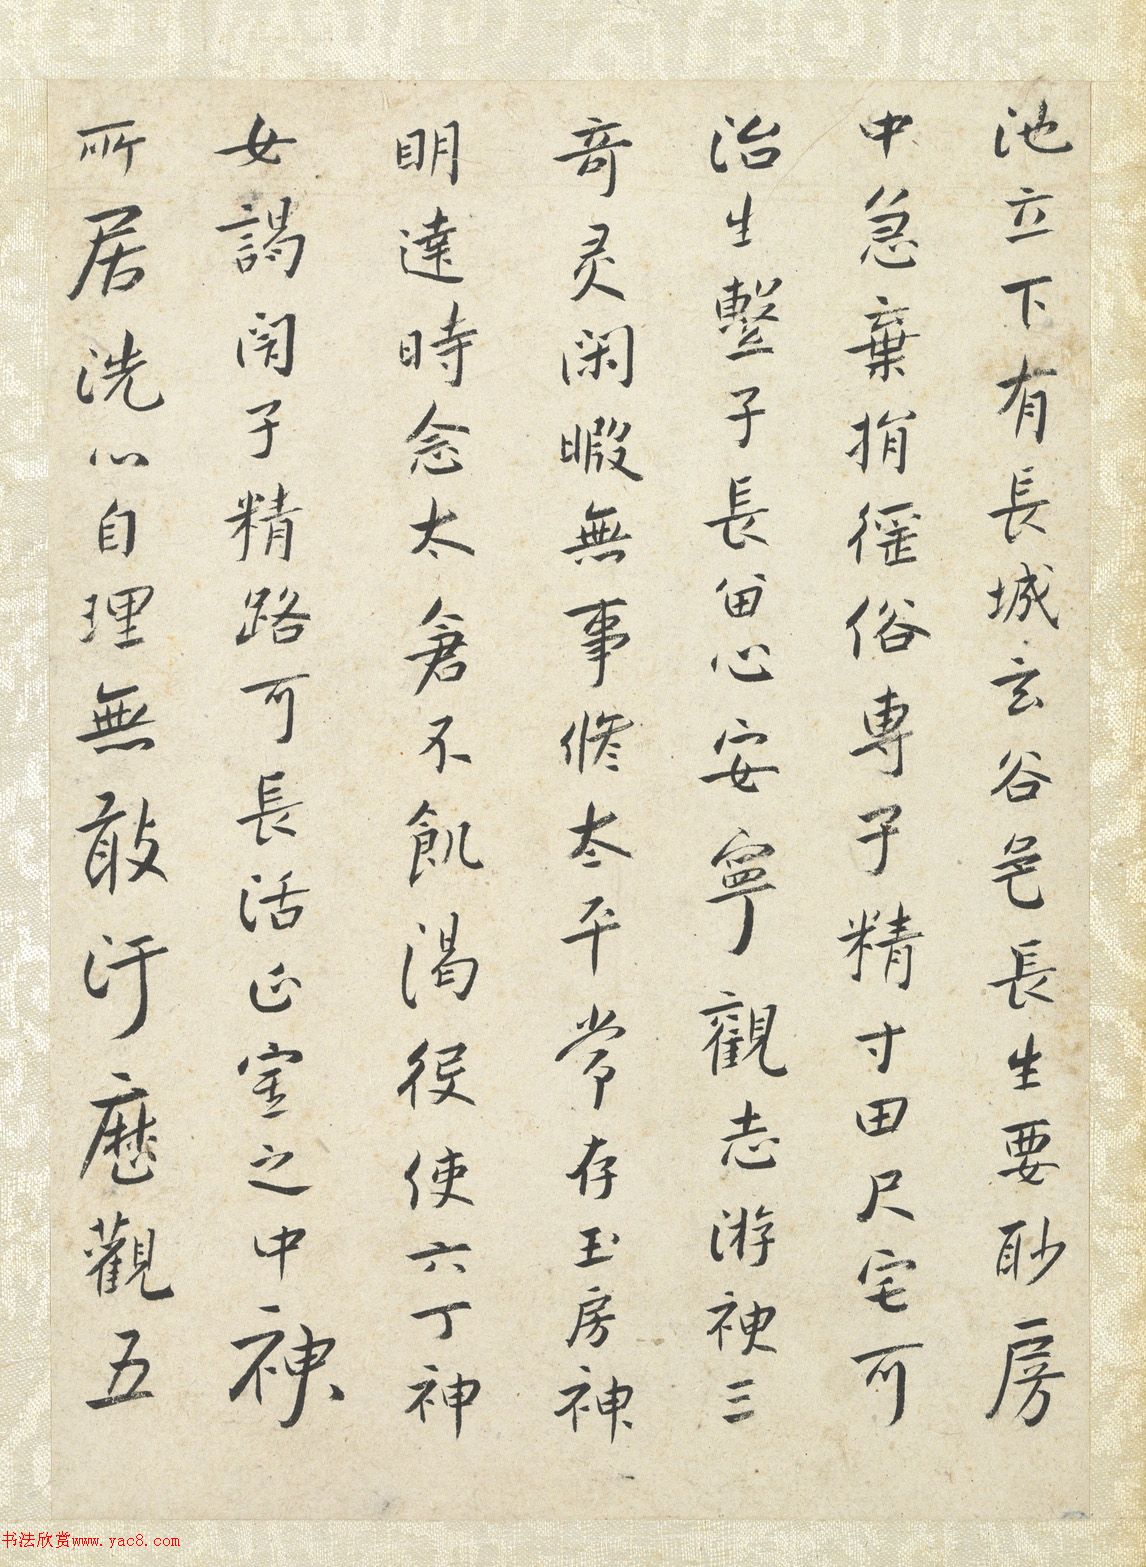 池立下有長城玄谷邑長生要眇房
中急棄捐徭俗專子精寸田尺宅可
治生繫子長留心安寧觀志游神三
奇灵閑暇無事修太平常存玉房神
明達時念太倉不飢渴役使六丁神
女謁閇子精路可長活正室之中神
所居洗心自理無敢汙歷觀五
书法欣赏www.yac8.com